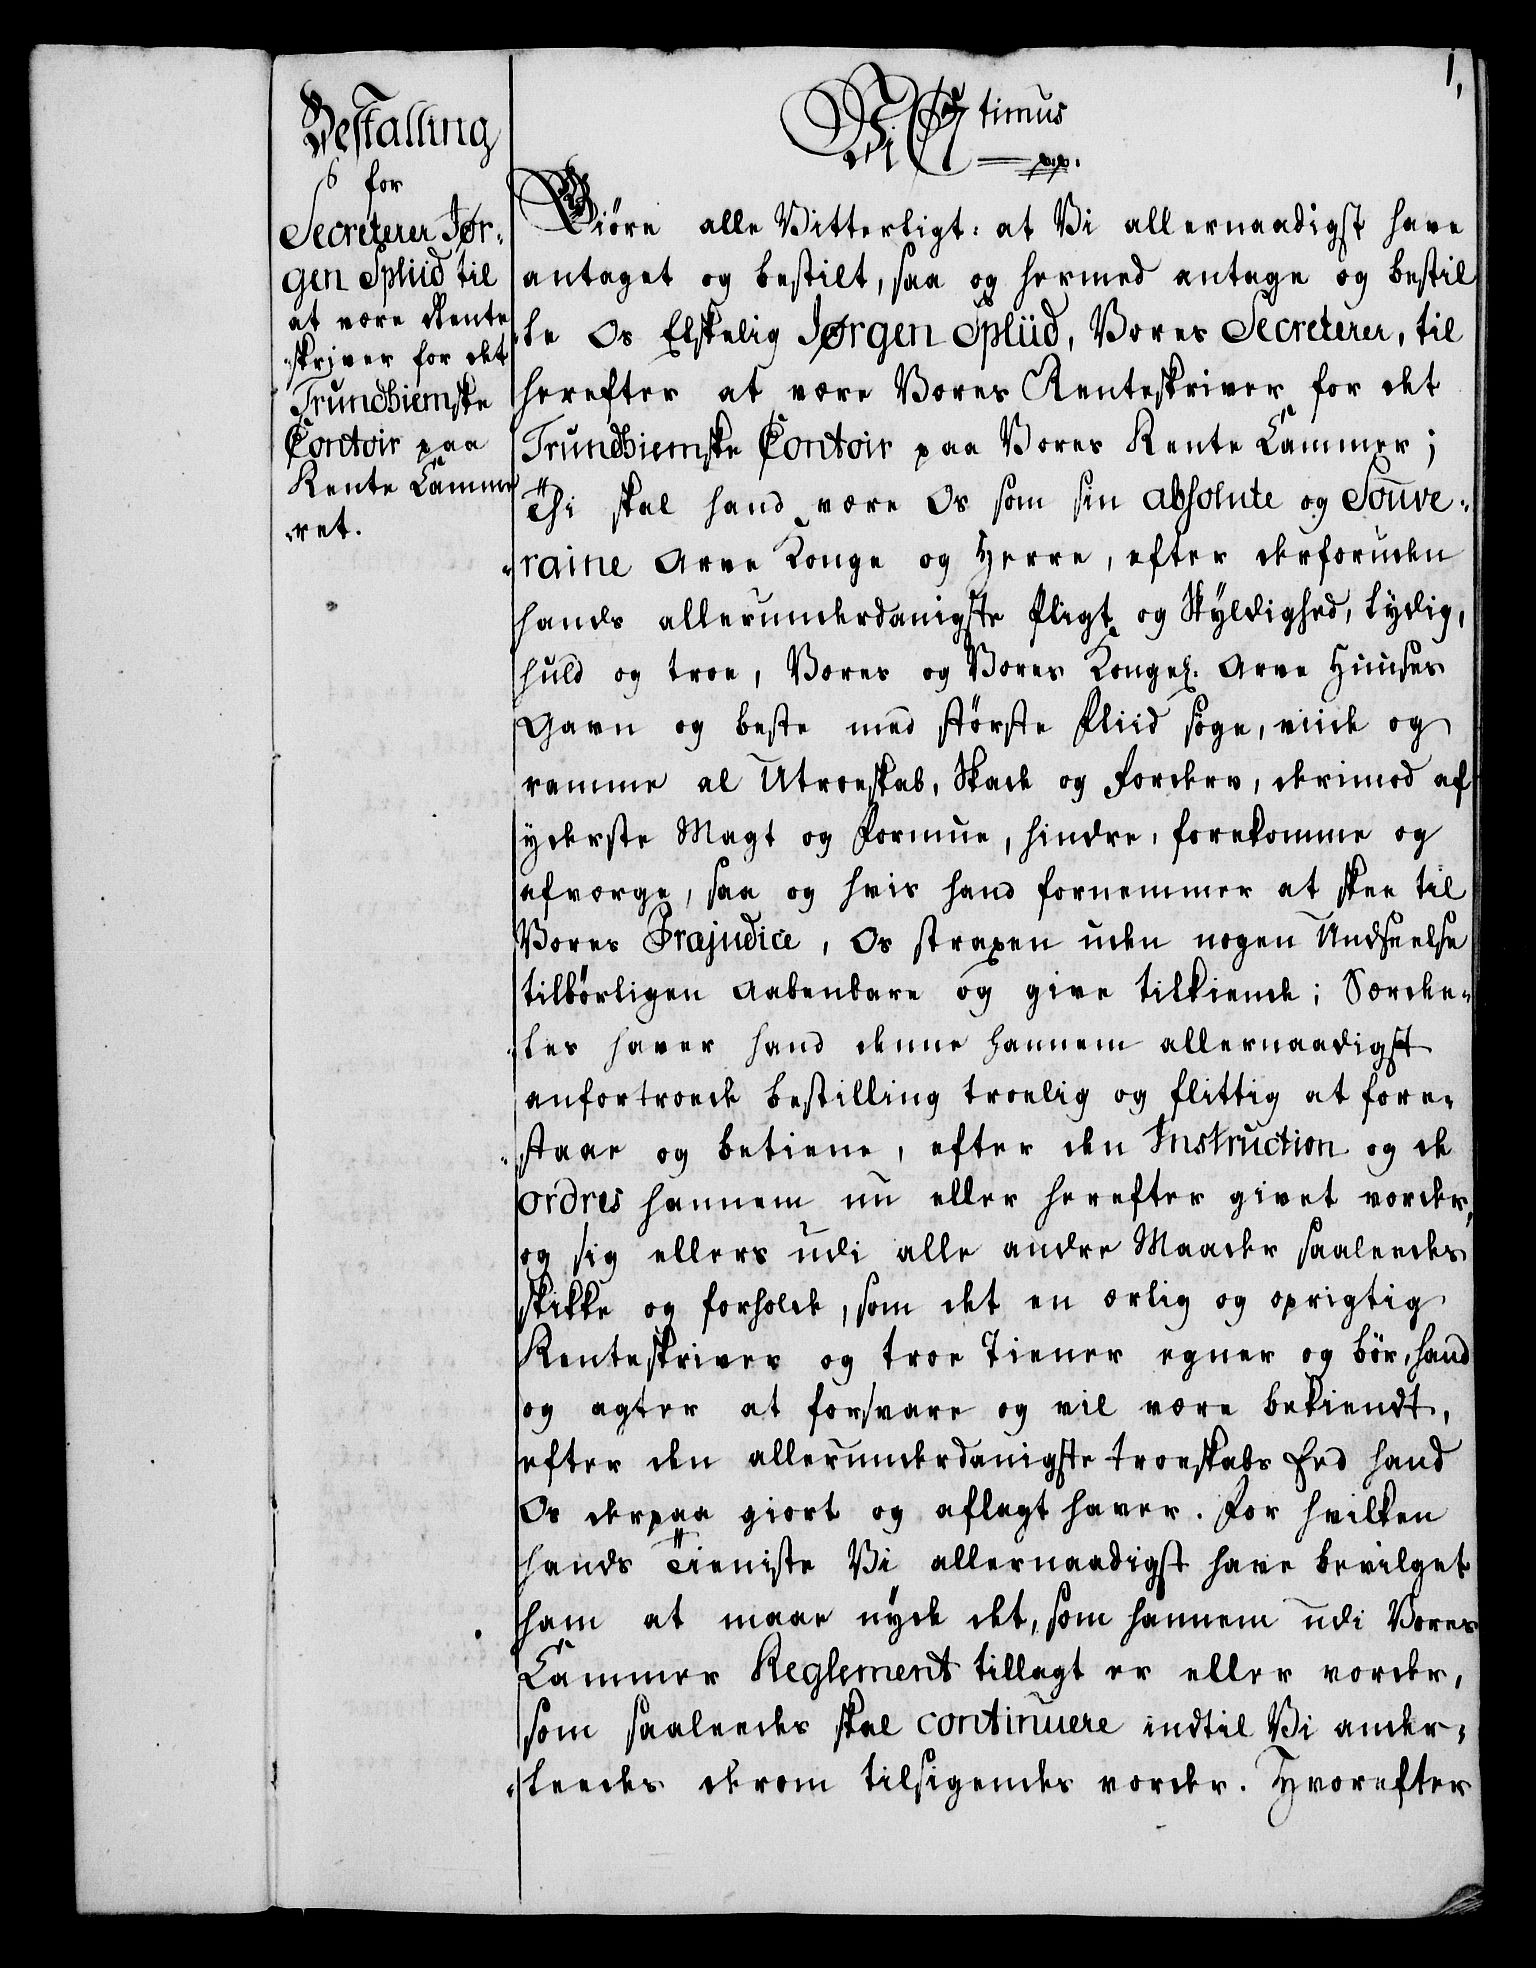 1,
Bestalling
for
Secreterer Jør-
gen Spliid til
at være Rente
-skriver for det
Trundhiemske
Contoir paa
Rente Camme
-ret.
Vi C 7timus
pp.
Giöre alle Vitterligt: at Vi allernaadigst have
antaget og bestilt, saa og hermed antage og bestil
-le Os Elskelig Jørgen Spliid, Vores Secreterer, til
herefter at være Vores Renteskriver for det
Trundhiemske Contoir paa Vores Rente Cammer;
Thi skal hand være Os som sin absolute og Souve-
-raine Arve Konge og Herre, efter derforuden
hands allerunderdanigste Pligt og Skyldighed, lydig,
huld og troe, Vores og Vores Kongel. Arve Huuses
Gavn og beste med störste Fliid söge, viide og
ramme al Utroeskab, Skade og Forderv, derimod af
yderste Magt og Formue, hindre, forekomme og
afværge, saa og hvis hand fornemmer at skee til
Vores Præjudice, Os straxen uden nogen Undseelse
tilbörligen aabenbare og give tilkiende; Særde-
-les haver hand denne hannem allernaadigst
anfortroede bestilling troelig og flittig at fore-
-staae og betiene, efter den Instruction og de
ordres hannem nu eller herefter givet vorder,
og sig ellers udi alle andre Maader saaleedes
skikke og forholde, som det en ærlig og oprigtig
Renteskriver og troe Tiener egner og bör, hand
og agter at forsvare og vil være bekiendt,
efter den allerunderdanigste troeskabs Eed hand
Os derpaa giort og aflagt haver. For hvilken
hands Tieniste Vi allernaadigst have bevilget
ham at maae nyde det, som hannem udi Vores
Cammer Reglement tillagt er eller vorder,
som saaleedes skal continuere indtil Vi ander-
-leedes derom tilsigendes vorder. Hvorefter